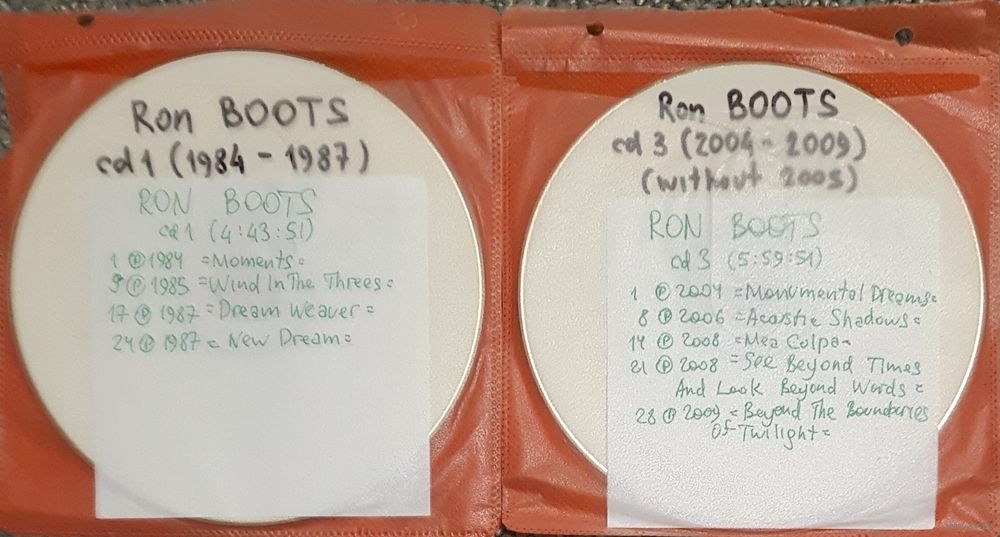 Ron BOOTS
cd 1 (1984 - 1987)
RON BOOTS
cd 1 (4:43:51)
1 Ⓟ 1984 =Moments=
9 Ⓟ 1985 =Wind In The Threes=
17 Ⓟ 1987 =Dream Weaver=
24 Ⓟ 1987 = New Dream=
Ron BOOTS
cd 3 (2004 - 2009)
(without 2005)
RON BOOTS
cd 3 (5:59:51)
1 Ⓟ 2004 =Monumental Dreams=
8 Ⓟ 2006 =Acoustic Shadows=
14 Ⓟ 2008 =Mea Culpa=
21 Ⓟ 2008 =See Beyond Times
And Look Beyond Words=
28 Ⓟ 2009 =Beyond The Boundaries
Of Twilight=